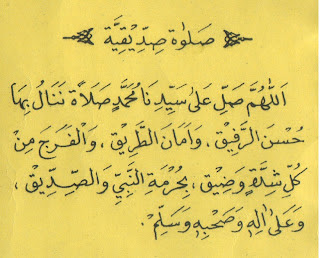 صَلَوٰة صِدِّيْقِيَّة
اَللّٰهُمَّ صَلِّ عَلىٰ سَيِّدِنَا مُحَمَّدٍ صَلَاةً نَنَالُ بِهَا
حُسْنَ الرَّفِيْقِ ، وَاَمَانَ الطَّرِيْقِ ، وَالْفَرَجَ مِنْ
كُلِّ شِدَّةٍ وَضِيْقٍ ، بِحُرْمَةِ النَّبِيِّ وَالصِّدِّيْقِ ،
وَعَلىٰ اٰلِهِ وَصَحْبِهِ وَسَلِّمْ .